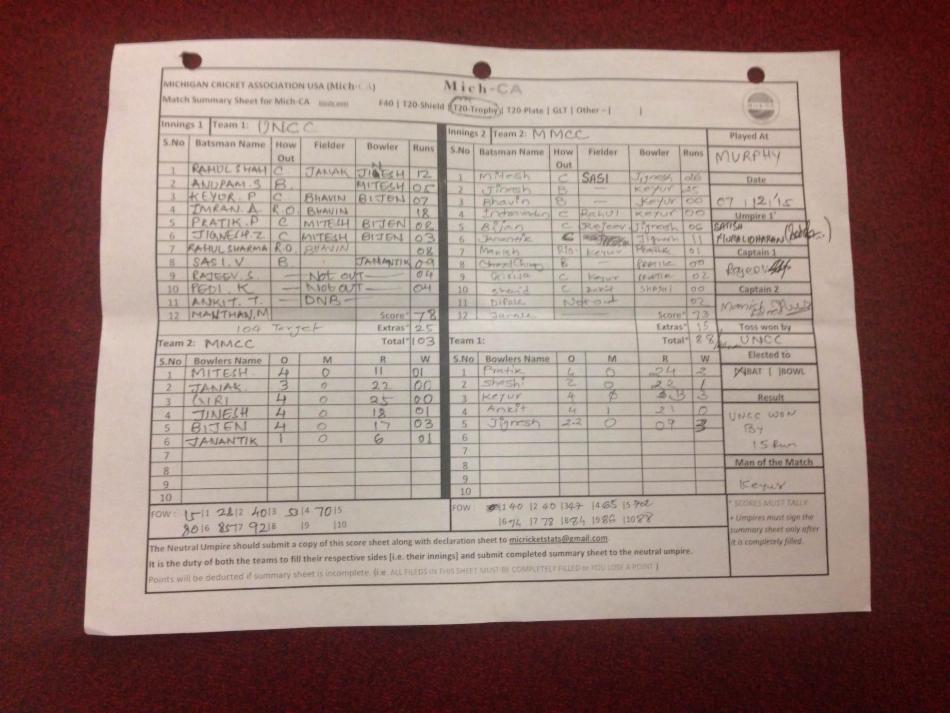 MICHIGAN CRICKET ASSOCIATION USA (Mich-CA) Mich-CA
Match Summary Sheet for Mich-CA F40 | T20-Shield | T20-Trophy | T20-Plate | GLT | Other – [ ]
Innings 1 Team 1: UNCC
S.No Batsman Name How Out Fielder Bowler Runs
1 RAHUL SHAH C JANAK JINESH 12
2 ANUPAM.S B. MITESH 05
3 KEYUR.P C BHAVIN BIJEN 07
4 IMRAN.A R.O. BHAVIN 18
5 PRATIK.P C MITESH BIJEN 08
6 JIGNESH Z C MITESH BIJEN 03
7 RAHUL SHARMA R.O. BHAVIN 08
8 SASI.V B JANANTIK 09
9 RAJEEV.S — Not out — 04
10 PEDI.K — Not out — 04
11 ANKIT.T. — DNB —
12 MANTHAN.M Score* 78
104 Target Extras* 25
Team 2: MMCC Total* 103
S.No Bowlers Name O M R W
1 MITESH. 4 0 11 01
2 JANAK 3 0 22 00
3 GIRI 4 0 25 00
4 JINESH 4 0 18 01
5 BIJEN 4 0 17 03
6 JANANTIK 1 0 6 01
7
8
9
10
FOW : 15|1 28|2 40|3 |4 70|5
80|6 85|7 92|8 |9 |10
Innings 2 Team 2: MMCC
S.No Batsman Name How Out Fielder Bowler Runs
1 Mitesh C SASI Jignesh
2 Jinesh B — Keyur 25
3 Bhavin B — Keyur 00
4 C Rahul Keyur 00
5 Bijen C Rajeev Jignesh 06
6 Janantik C Jignesh 11
7 Manish R/O Keyur Pratik 01
8 B — Pratik 00
9 C Keyur Pratik 02
10 C Ankit Shashi 00
11 Dipak Not out 02
12 Score* 73
Extras* 15
Team 1: Total* 88
S.No Bowlers Name O M R W
1 Pratik 4 0 24 2
2 Shashi 2 0 22 1
3 Keyur 4 0 3
4 Ankit 4 1 21 0
5 Jignesh 2.2 0 09 3
6
7
8
9
10
FOW |1 40 |2 40 |3 47 |4 65 |5 70
|6 74 |7 78 |8 84 |9 86 |10 88
Played At
MURPHY
Date
07/12/15
Umpire 1*
SATISH
MURALIDHARAN
Captain 1
Rajeev
Captain 2
Manish
Toss won by
UNCC
Elected to
[X]BAT [ ]BOWL
Result
UNCC WON
By
15 Run
Man of the Match
Keyur
* SCORES MUST TALLY
+ Umpires must sign the
summary sheet only after
it is completely filled.
The Neutral Umpire should submit a copy of this score sheet along with declaration sheet to micricketstats@gmail.com.
It is the duty of both the teams to fill their respective sides [i.e. their innings] and submit completed summary sheet to the neutral umpire.
Points will be deducted if summary sheet is incomplete. (i.e. ALL FILEDS IN THIS SHEET MUST BE COMPLETELY FILLED or YOU LOSE A POINT )